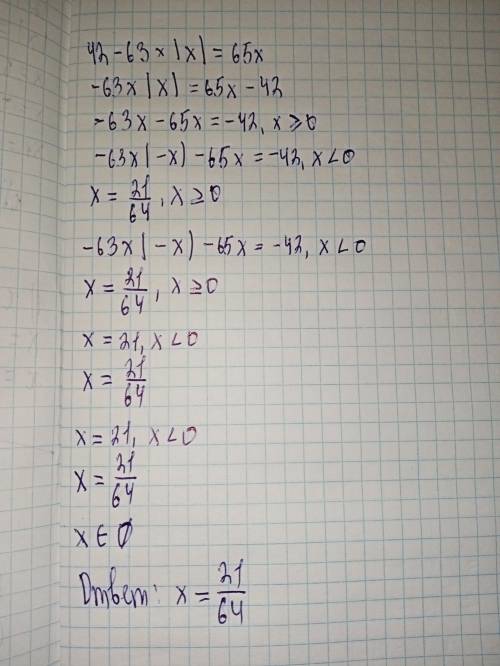 42-63x|x|=65x
-63x|x|=65x-42
-63x-65x=-42, x≥0
-63x(-x)-65x=-42, x<0
x=21/64, x≥0
-63x(-x)-65x=-42, x<0
x=21/64, x≥0
x=21, x<0
x=21/64
x=21, x<0
x=21/64
x∈∅
Ответ: x=21/64